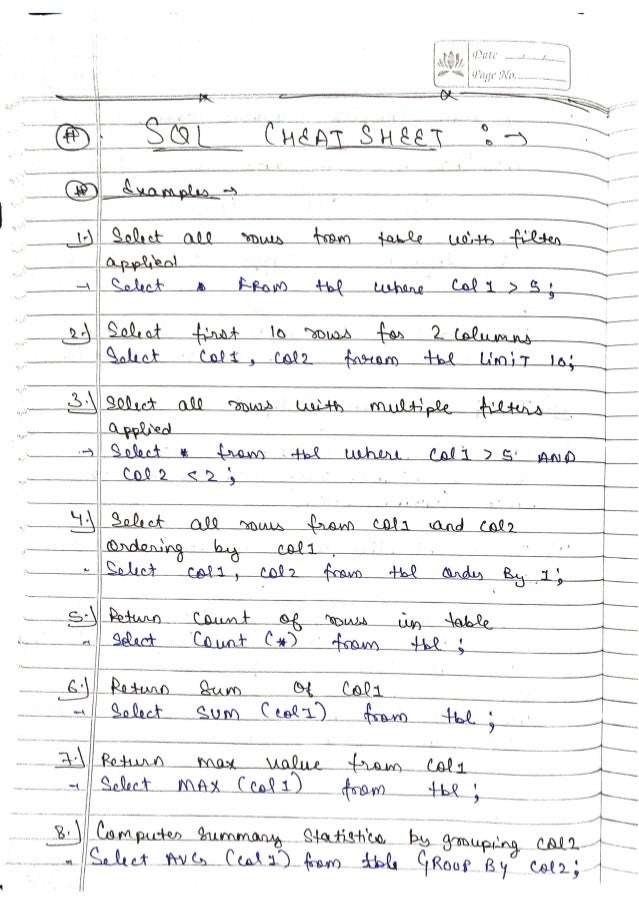 Date
Page No.
# SQL CHEAT SHEET :→
# Examples →
1.) Select all rows from table with filter
applied
→ Select * FROM tbl where Col 1 > 5 ;
2.) Select first 10 rows for 2 columns
Select Col1 , Col2 from tbl LIMIT 10;
3.) Select all rows with multiple filters
applied
→ Select * from tbl where Col 1 > 5 AND
Col 2 < 2 ;
4.) Select all rows from col1 and col2
Ordering by col1
- Select col1, col2 from tbl order By 1;
5.) Return Count of rows in table
- Select Count (*) from tbl ;
6.) Return Sum of Col1
→ Select SUM (col1) from tbl ;
7.) Return max value from Col1
→ Select MAX (col1) from tbl ;
8.) Computer Summary Statistics by grouping Col2
- Select AVG (col1) from tbl GROUP BY Col2;